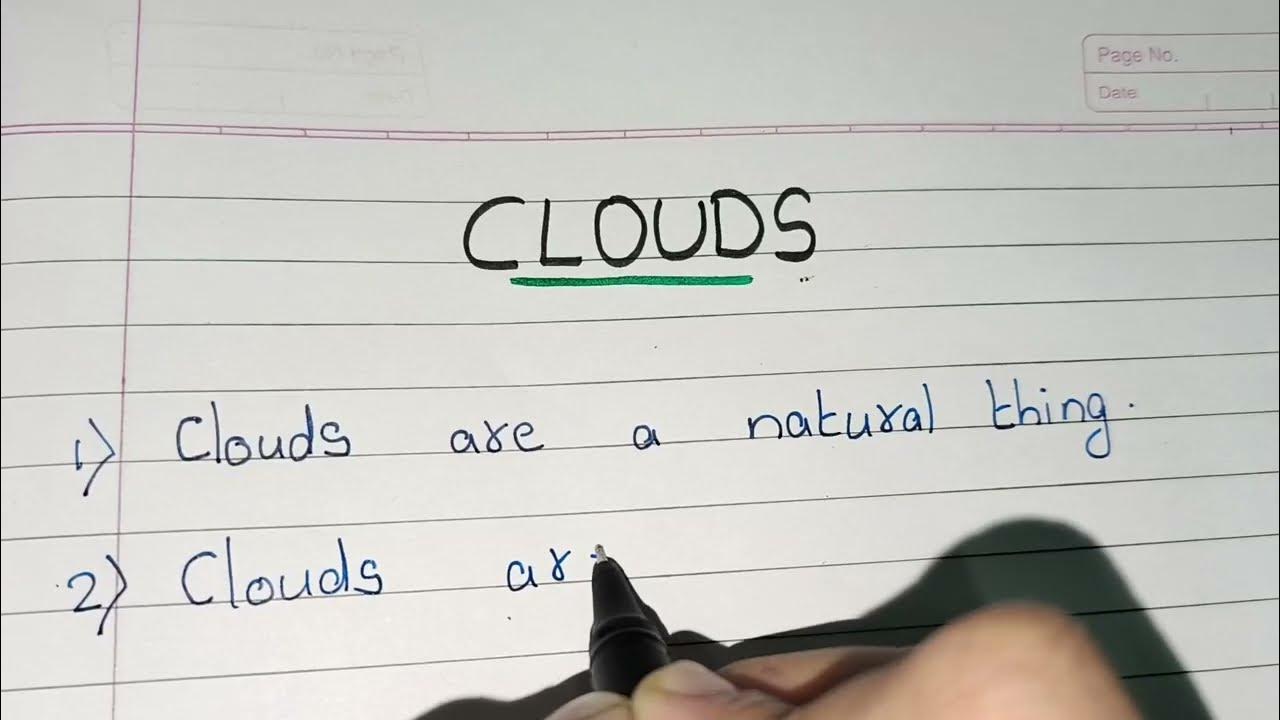 Page No.
Date
CLOUDS
1) Clouds are a natural thing.
2) Clouds ar